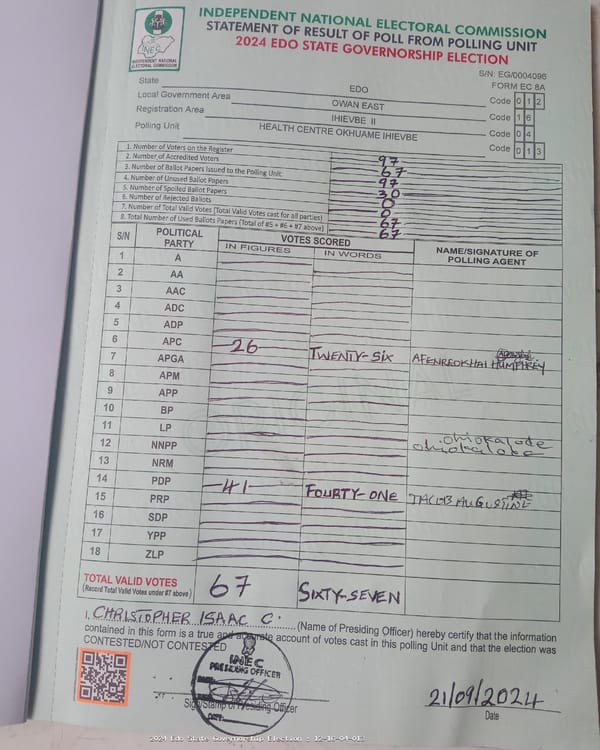 INDEPENDENT NATIONAL ELECTORAL COMMISSION
STATEMENT OF RESULT OF POLL FROM POLLING UNIT
2024 EDO STATE GOVERNORSHIP ELECTION
INEC
INDEPENDENT NATIONAL
ELECTORAL COMMISSION
S/N: EG/0004096
FORM EC 8A
State EDO
Local Government Area OWAN EAST Code 0 1 2
Registration Area IHIEVBE II Code 1 6
Polling Unit HEALTH CENTRE OKHUAME IHIEVBE Code 0 4
Code 0 1 3
1. Number of Voters on the Register 97
2. Number of Accredited Voters 67
3. Number of Ballot Papers Issued to the Polling Unit 97
4. Number of Unused Ballot Papers 30
5. Number of Spoiled Ballot Papers 0
6. Number of Rejected Ballots 0
7. Number of Total Valid Votes (Total Valid Votes cast for all parties) 67
8. Total Number of Used Ballots Papers (Total of #5 + #6 + #7 above) 67
S/N POLITICAL PARTY VOTES SCORED NAME/SIGNATURE OF POLLING AGENT
IN FIGURES IN WORDS
1 A
2 AA
3 AAC
4 ADC
5 ADP
6 APC 26 TWENTY-SIX AFENREOKHAI HUMPHREY
7 APGA
8 APM
9 APP
10 BP
11 LP
12 NNPP
13 NRM
14 PDP 41 FOURTY-ONE JACOB AUGUSTINE
15 PRP
16 SDP
17 YPP
18 ZLP
TOTAL VALID VOTES 67 SIXTY-SEVEN
(Record Total Valid Votes under #7 above)
I, CHRISTOPHER ISAAC C. (Name of Presiding Officer) hereby certify that the information
contained in this form is a true and accurate account of votes cast in this polling Unit and that the election was
CONTESTED/NOT CONTESTED
INEC
PRESIDING OFFICER
Sign/Stamp of Presiding Officer
DATE:
21/09/2024
Date
2024 Edo State Governorship Election : 12-16-04-013